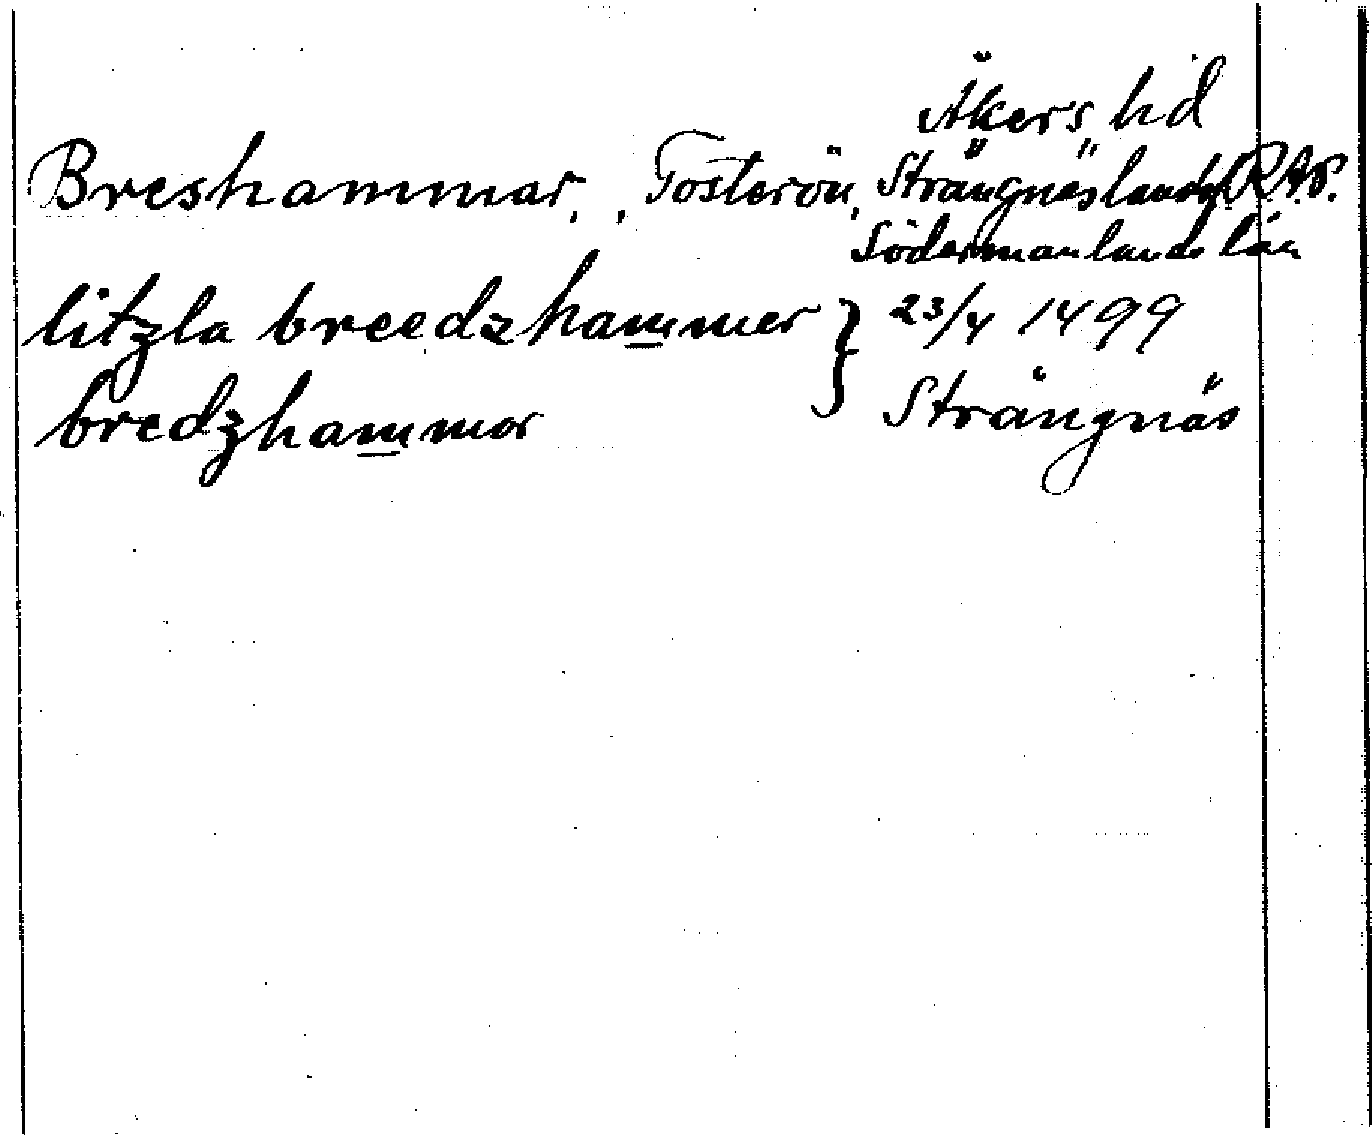 Åkers hd
Breshammar, , Tosterön, Strängnäs landsf RAP.
Södermanlands län
litzla breedzhammer } 23/4 1499
bredzhammar Strängnäs